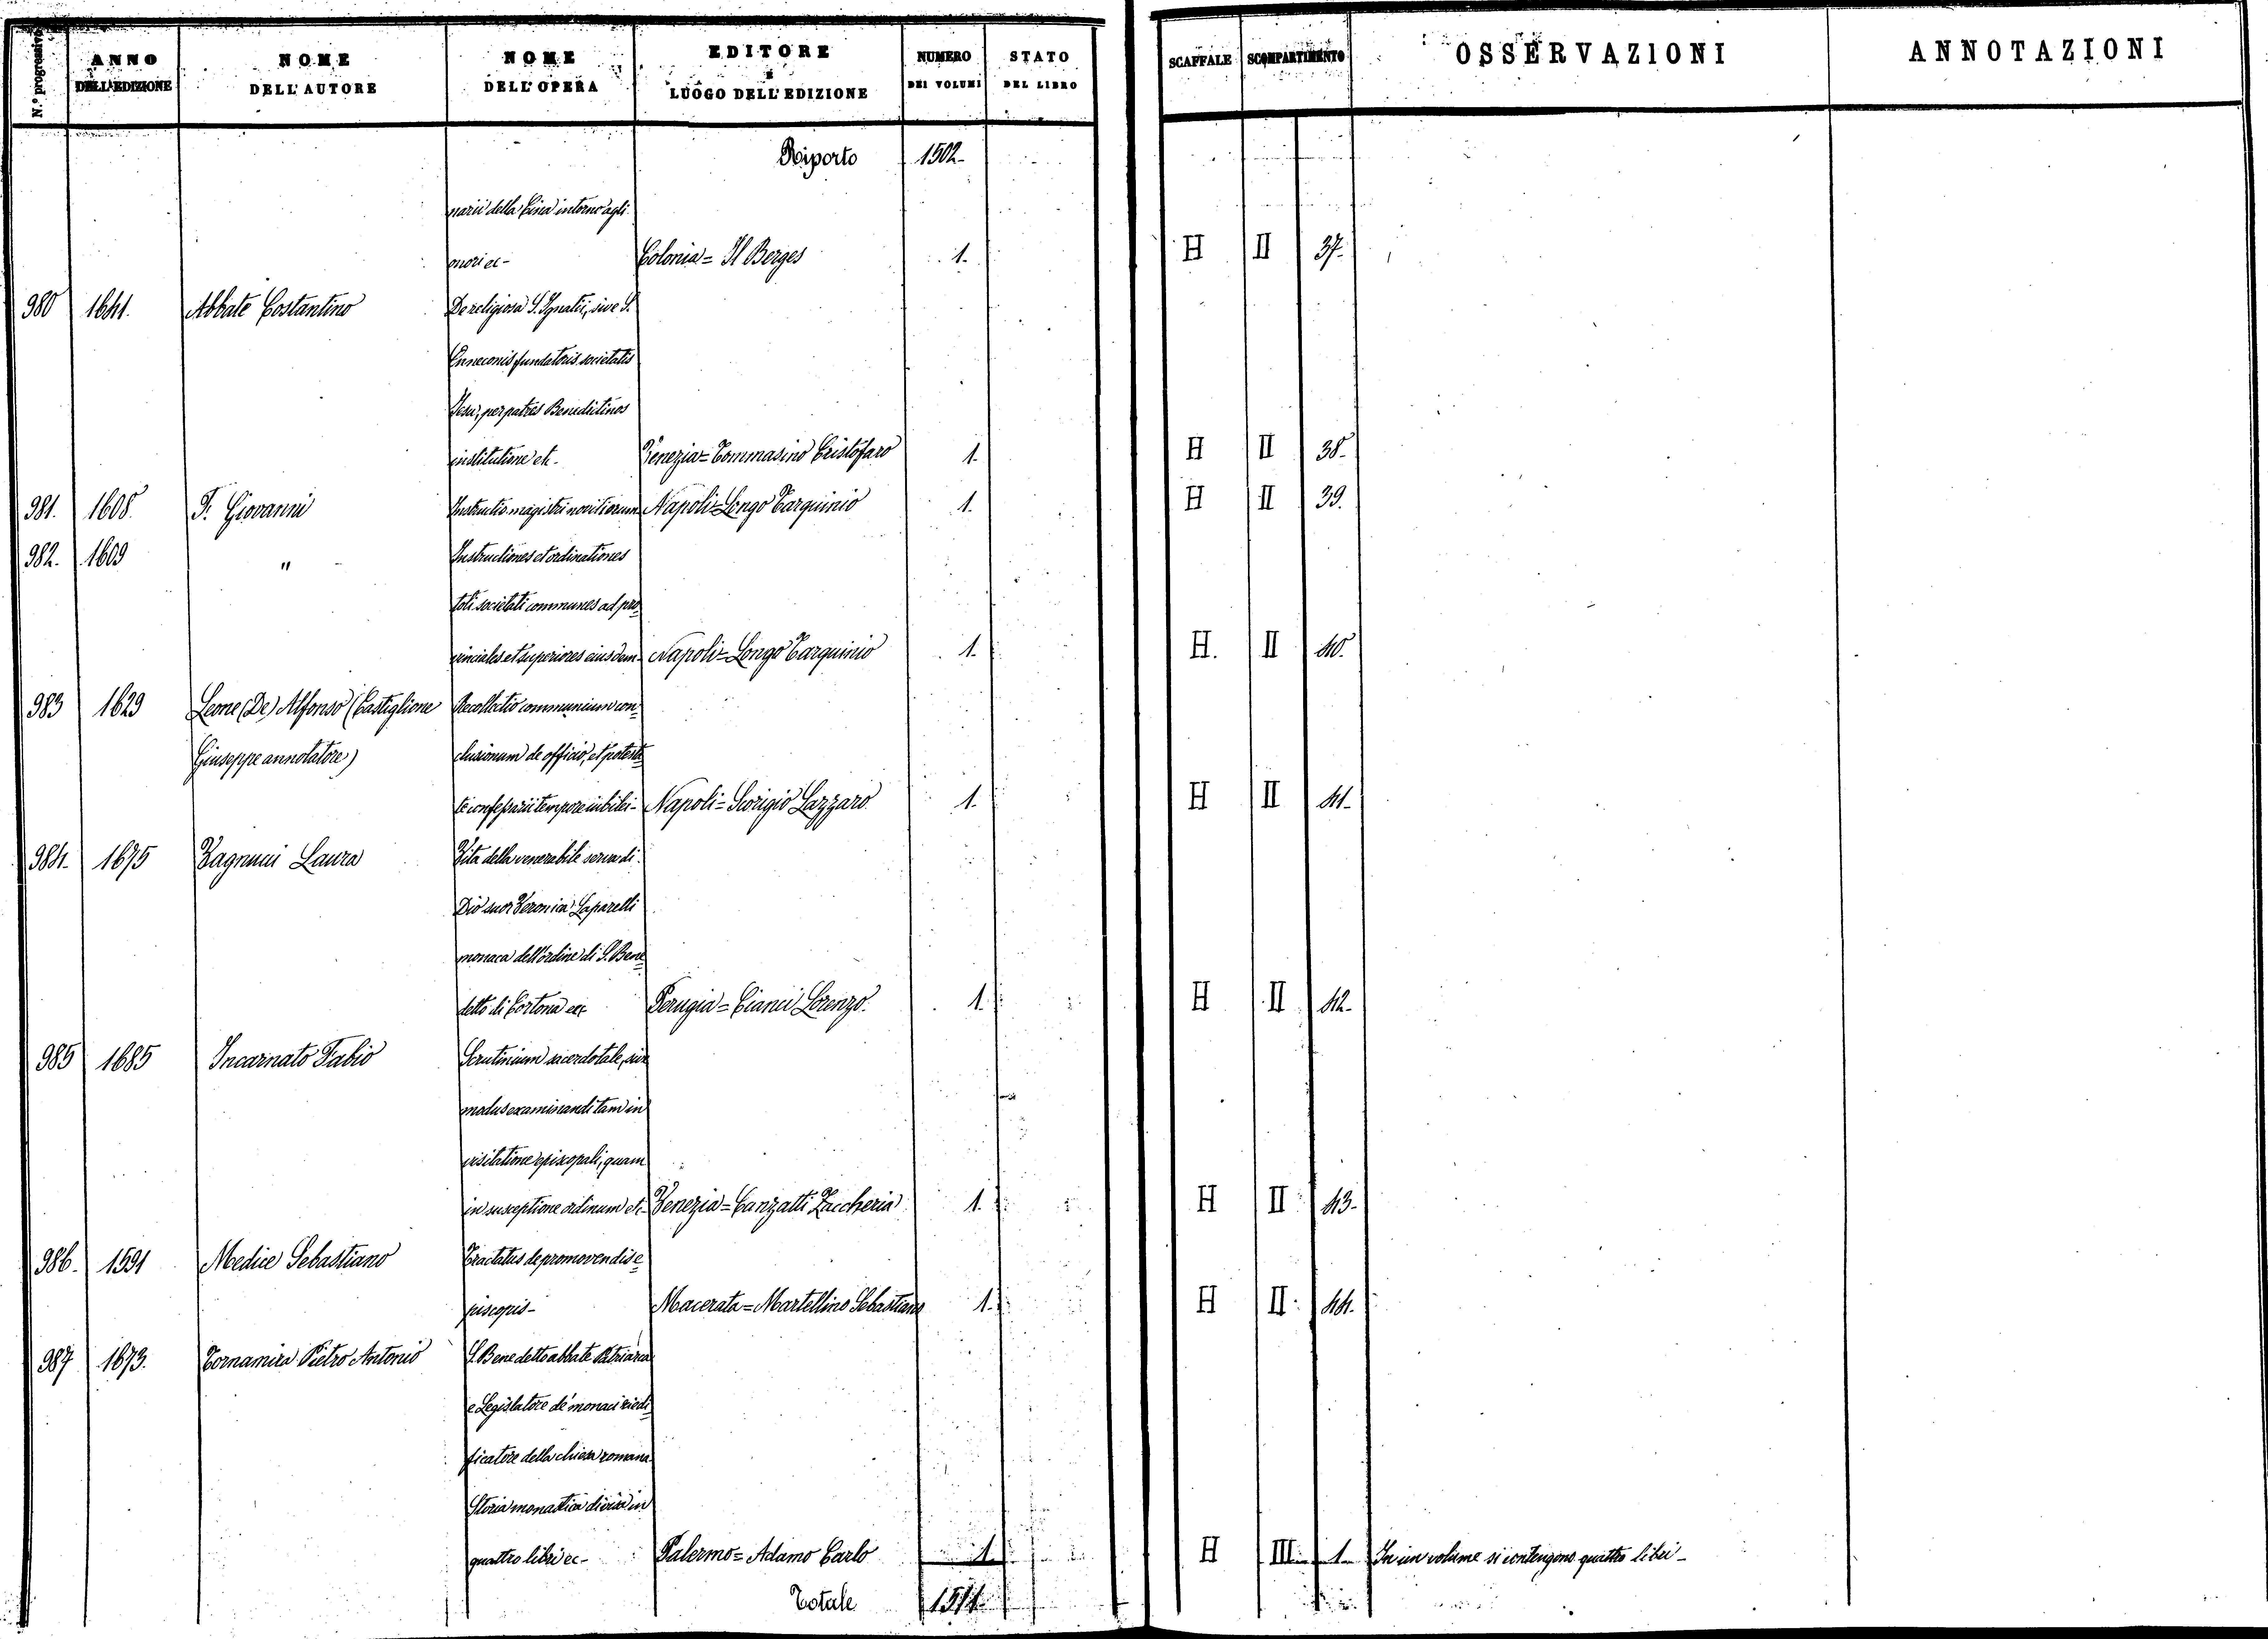 N.º progressivo
ANNO DELL'EDIZIONE
NOME DELL'AUTORE
NOME DELL'OPERA
EDITORE E LUOGO DELL'EDIZIONE
NUMERO DEI VOLUMI
STATO DEL LIBRO
SCAFFALE
SCOMPARTIMENTO
OSSERVAZIONI
ANNOTAZIONI
Riporto 1502-
narii della Cina intorno agli
onori ec- Colonia= Il Berges 1. H II 37.
980 1641. Abbate Costantino De religiosa S. Ignatii, sive S.
Enneconis fundatoris societatis
Jesu, per patres Benedictinos
institutione etc- Venezia= Tommasino Cristofaro 1. H II 38.
981. 1608. F. Giovanni Instructio magistri novitiorum Napoli= Longo Tarquinio 1. H II 39.
982. 1609 " Instructiones et ordinationes
toti societati communes ad pro=
vinciales et superiores eiusdem- Napoli= Longo Tarquinio 1. H. II 40.
983 1629 Leone (De) Alfonso (Castiglione Recollectio communium con=
Giuseppe annotatore) clusionum de officio, et potesta=
te confessarii tempore iubilei- Napoli= Scorigio Lazzaro 1. H II 41-
984. 1675 Vagnucci Laura Vita della venerabile serva di
Dio suor Veronica Laparelli
monaca dell'ordine di S. Bene=
detto di Cortona ec- Perugia= Cianci Lorenzo. 1. H II 42-
985 1685 Incarnato Fabio Scrutinium sacerdotale, sive
modus examinandi tam in
visitatione episcopali, quam
in susceptione ordinum etc- Venezia= Canzatti Zaccheria 1. H II 43-
986. 1591 Medice Sebastiano Tractatus de promovendis e=
piscopis- Macerata= Martellino Sebastiano 1. H II 44.
987 1673. Tornamira Pietro Antonio S. Benedetto abbate Patriarca
e Legislatore de' monaci riedi=
ficatore della chiesa romana.
Storia monastica divisa in
quattro libri ec- Palermo= Adamo Carlo 1. H III 1. In un volume si contengono quattro libri-
Totale 1511.